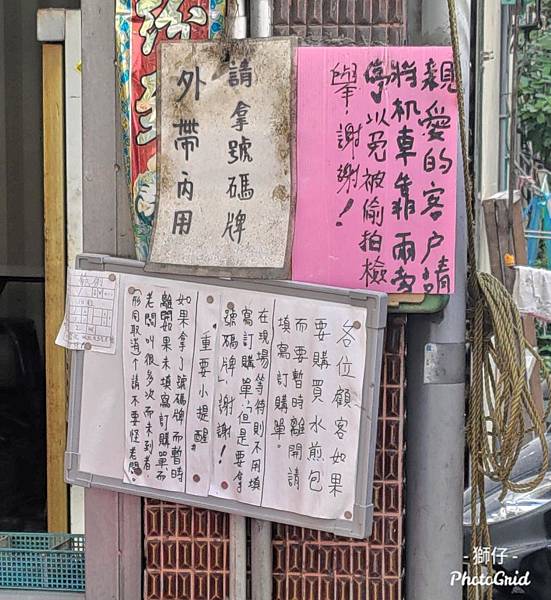 親愛的客戶請
將机車靠兩旁
停以免被偷拍檢
舉,謝謝!
請拿號碼牌
外帶內用
各位顧客如果
要購買水煎包
而要暫時離開請
填寫訂購單。
在現場等待則不用填
寫訂購單,但是要拿
號碼牌,謝謝!
重要小提醒
如果拿了號碼牌而暫時
離開如果未填寫訂購單而
老闆叫很多次而未到者,
視同取消,請不要怪老闆。
-獅仔-
PhotoGrid